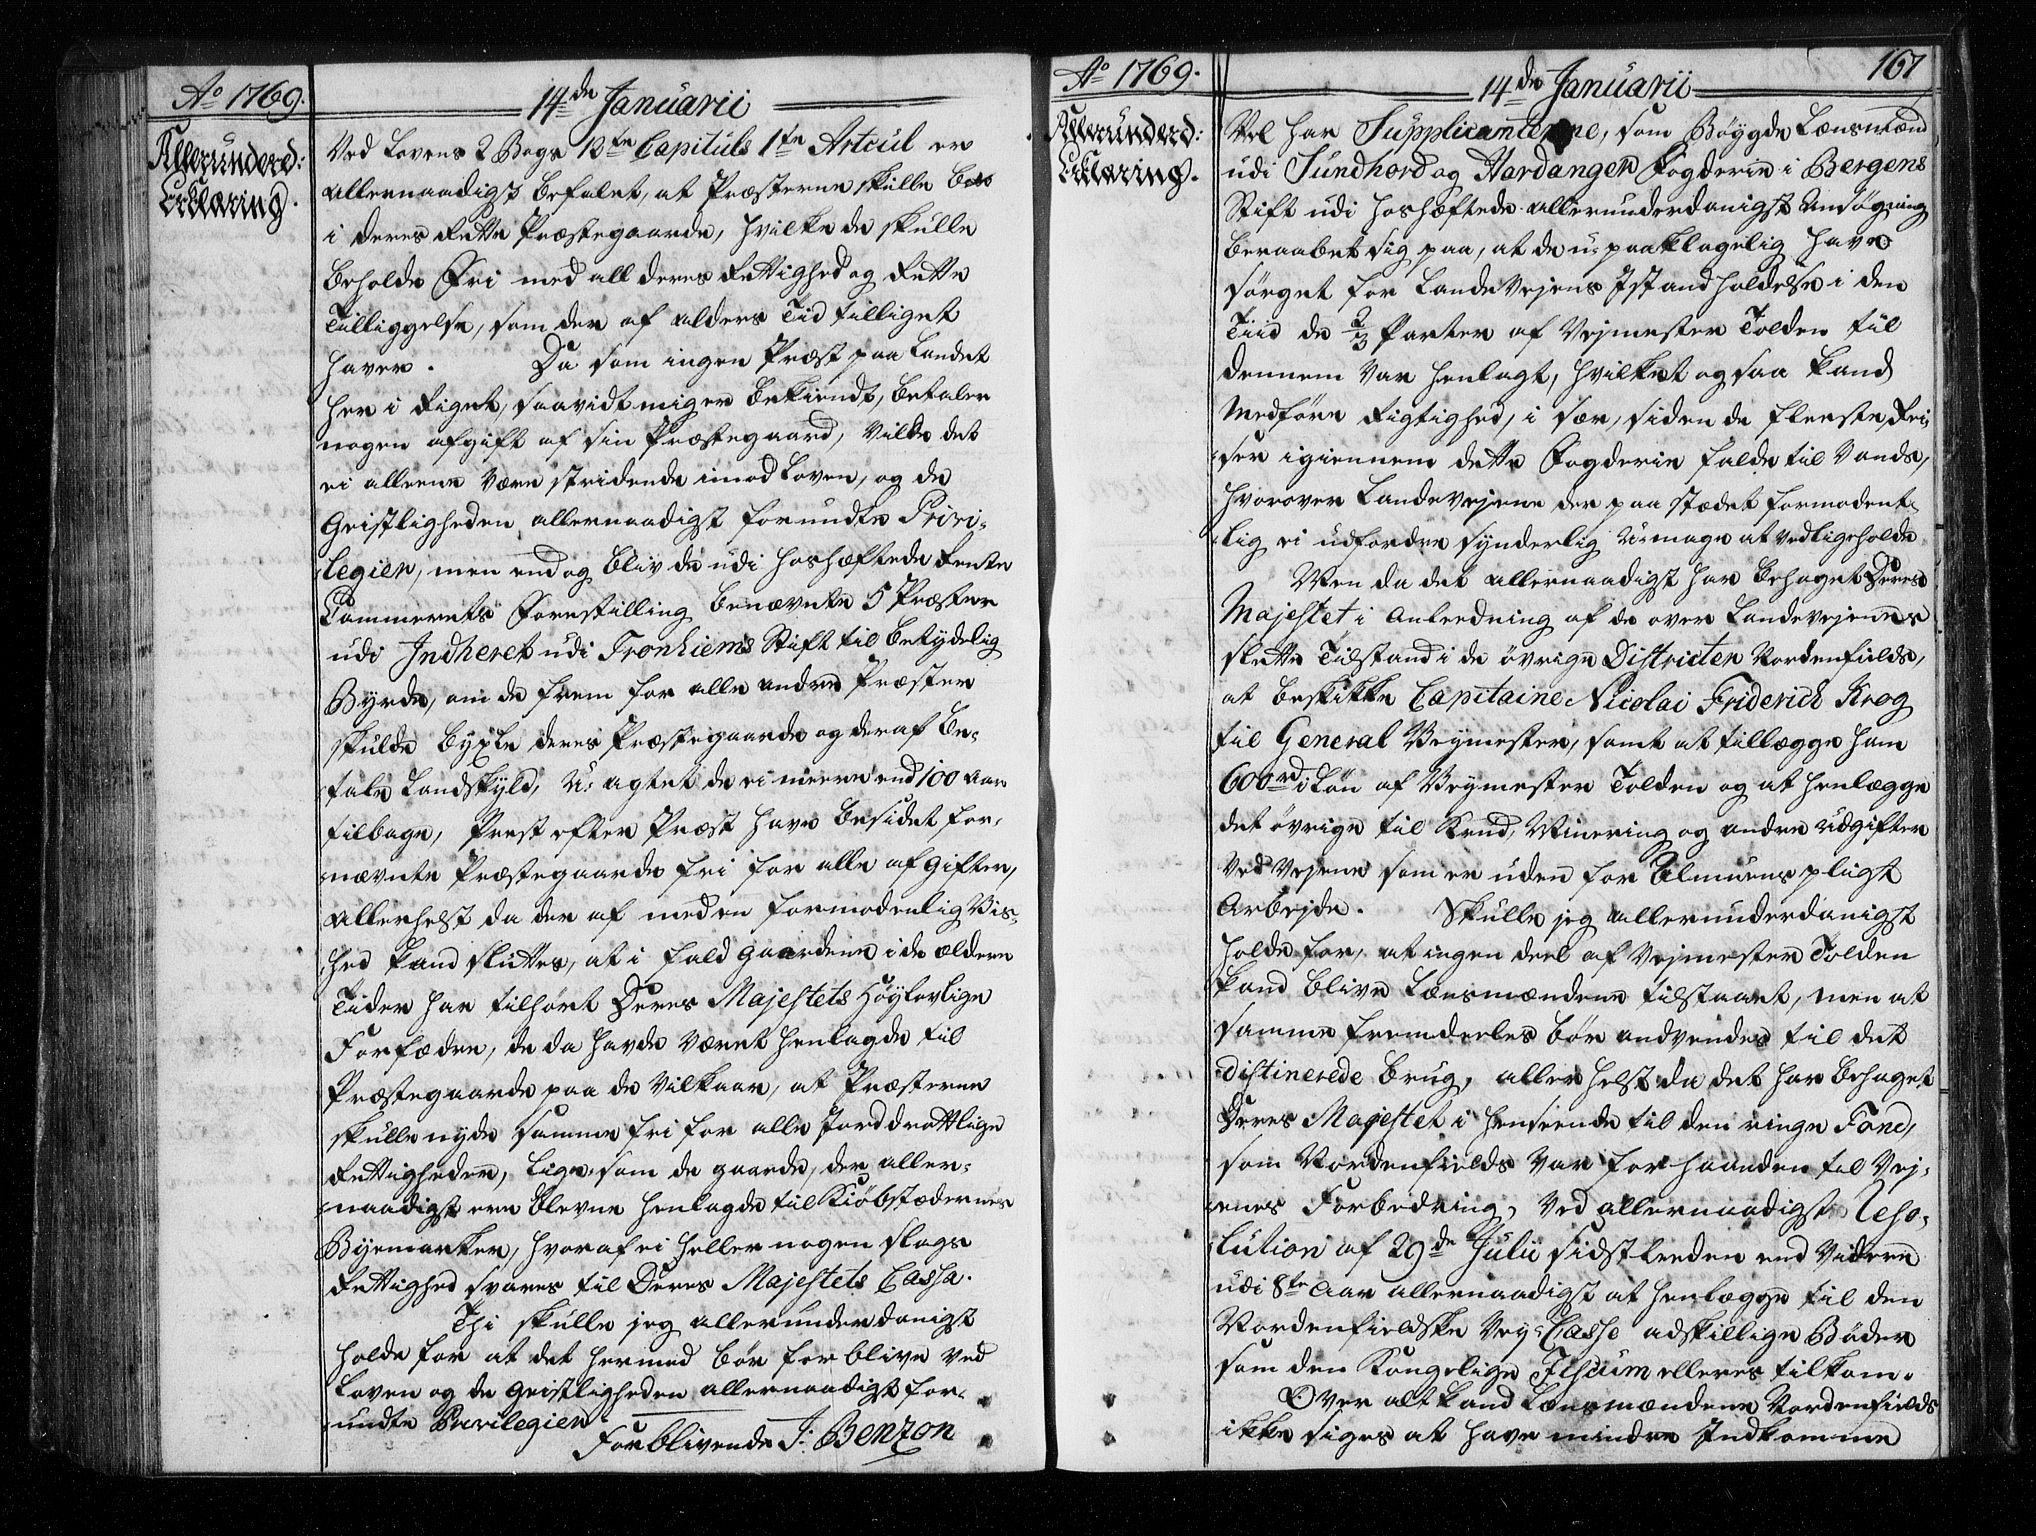 Ao 1769.
14de Januarii
Allerunderd:
Erklæring.
Ved Lovens 2 Bogs 12te Capituls 1te Articul er
allernaadigst befalet, at Præsterne skulle boe
i deres rette Præstegaarde, hvilke de skulle
beholde Fri med all deres Rettighed og rette
Tilliggelse, som der af alders Tid tilliget
haver. Da som ingen Præst paa Landet
her i Riget, saavidt mig er bekiendt, betaler
nogen afgift af sin Præstegaard, vilde det
ei alleene være stridende imod Loven, og de
Geistligheden allernaadigst forundte Privi-
legier, men endog bliv de udi hoshæftede Rente
Cammerets Forestilling benævnte 5 Præster
udi Indheret udi Tronhiems Stift til betydelig
Byrde, om de frem for alle andre Præster
skulde byxle deres Præstegaarde og deraf be-
tale Landskyld, u-agtet de ei meere end 100 Aar
tilbage, Prest efter Præst have besidet for-
nævnte Præstegaarde fri for alle afgifter,
allerhelst da der af med en formodenlig Vis-
hed kand sluttes, at i fald gaardene i de ældere
Tider har tilhørt Deres Majestets Høylovlige
Forfædre, de da havde været henlagde til
Præstegaarde paa de Vilkaar, at Præsterne
skulle nyde samme fri for alle Jorddrottlige
Rettigheder, lige som de gaarde, der aller-
naadigst ere blevne henlagde til Kiøbstædernes
Byemarker, hvoraf ei heller nogen slags
Rettighed svares til Deres Majestets Cassa.
Thi skulle jeg allerunderdanigst
holde for at det hermed bør forblive ved
Loven og de Geistligheden allernaadigst for-
undte Privilegier.
Forblivende J: Benzon
Ao 1769.
14de Januarii
167
Allerunderd:
Erklæring.
Vel har Supplicanterne, som Bøygde Lænsmænd
udi Sundhord og Hardanger Fogderie i Bergens
Stift udi hoshæftede allerunderdanigst Ansøgning
beraabet sig paa, at de u-paaklagelig have
sørget for Landevejens Istandholdelse i den
Tiid de 2/3 Parter af Vejmester Tolden til
dennem var henlagt, hvilket ogsaa kand
medføre Rigtighed, i sær, siden de fleeste Rei-
ser igiennem dette Fogderie falde til Vands,
hvorover Landevejene der paa stædet formodent-
lig ei udfordre synderlig u-mage at vedligeholde.
Men da det allernaadigst har behaget Deres
Majestet i Anledning af de over Landevejenes
slette Tilstand i de øvrige Districter Nordenfields,
at beskikke Capitaine Nicolai Friderich Krog
til General Veymester, samt at tillægge ham
600rd i Løn af Veymester Tolden og at henlægge
det øvrige til Krud, Minering og andre udgifter
ved Vejene som er uden for Almuens pligt
Arbejde. Skulle jeg allerunderdanigst
holde for, at ingen deel af Vejmester Tolden
kand blive Lænsmændene tilstaaet, men at
samme fremdeeles bør andvendes til det
distinerede brug, aller helst da det har behaget
Deres Majestet i henseende til den ringe Fond,
som Nordenfields var for haanden til Vej-
enes Forbedring, ved allernaadigst Reso-
lution af 29de Julii sidstleeden end videre
udi 8te Aar allernaadigst at henlægge til den
Nordenfieldske Vey-Casse adskillige Bøder
som den Kongelige Fiscum ellers tilkom.
Over alt kand Lænsmændene Nordenfields
ikke siges at have mindre Indkomme